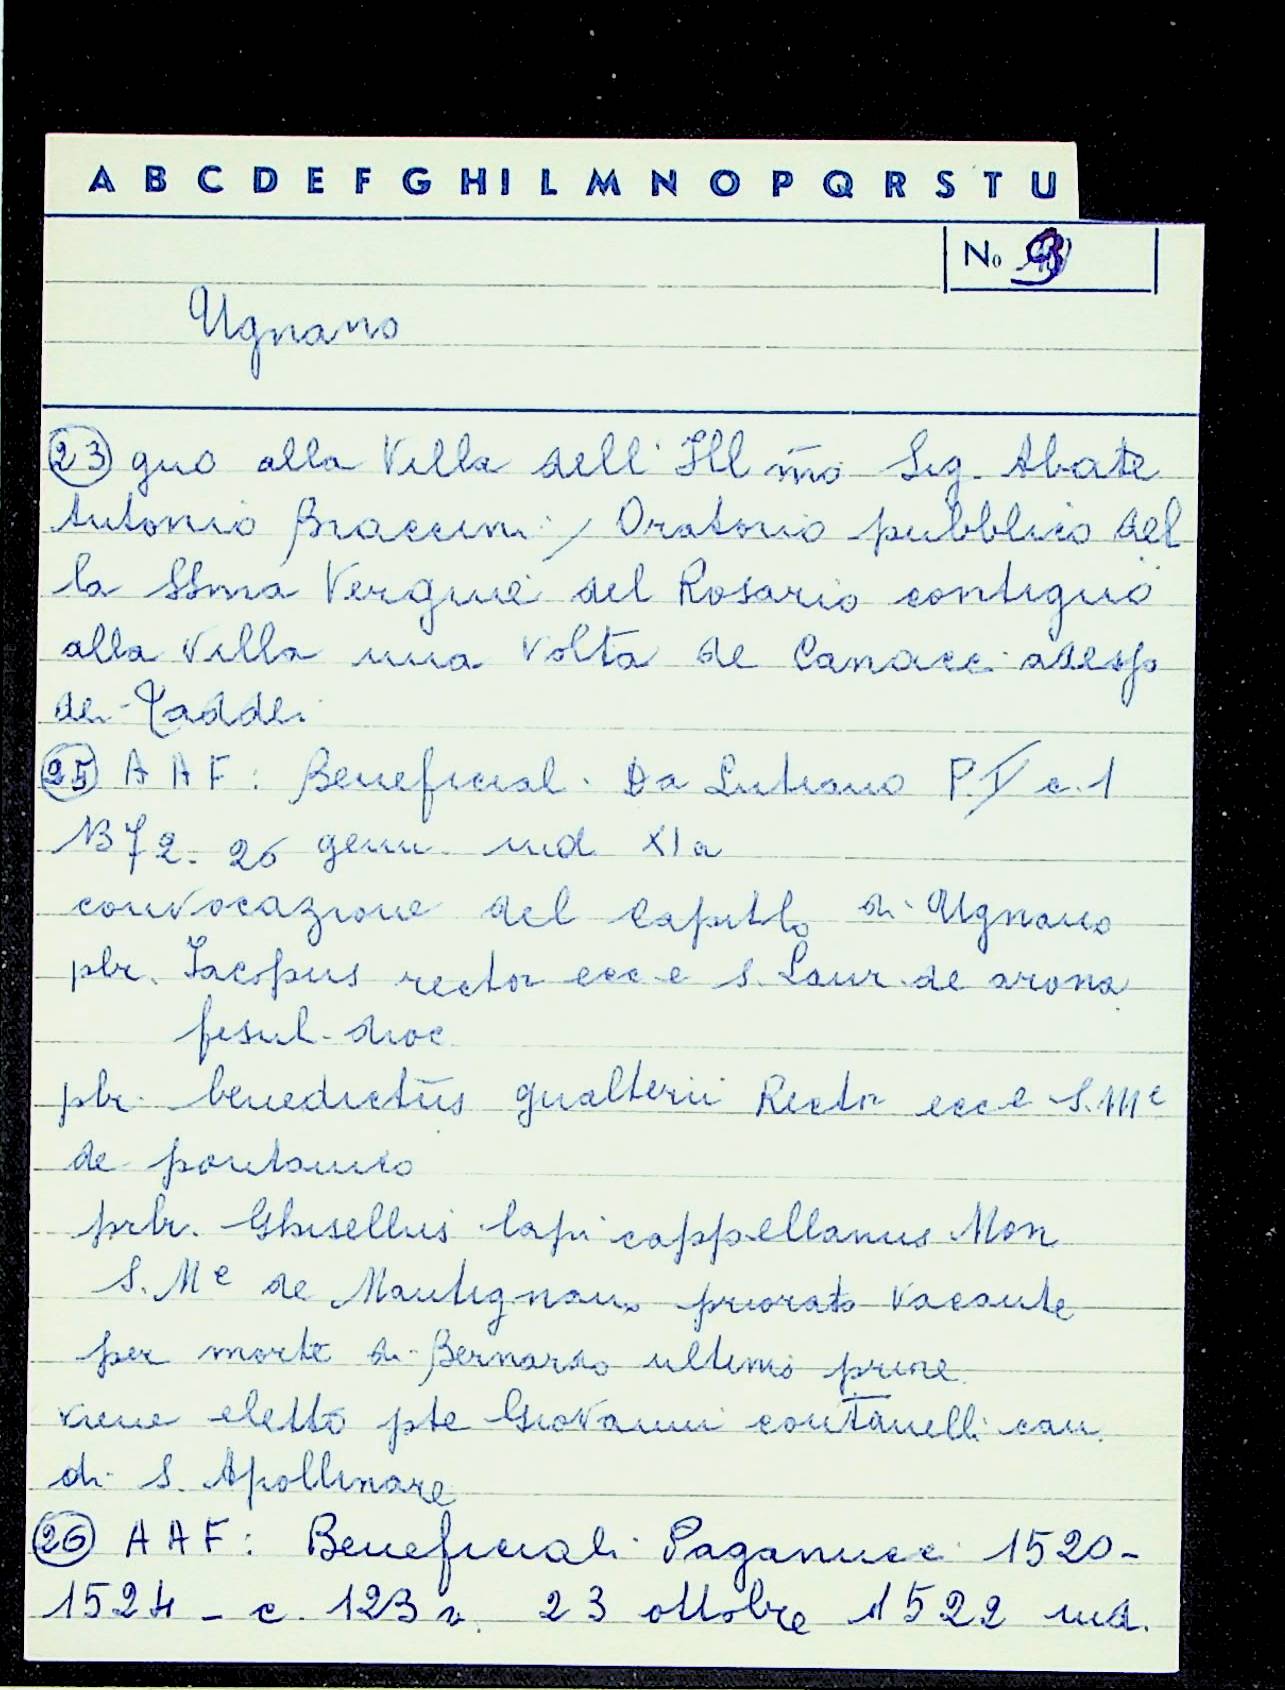 A B C D E F G H I L M N O P Q R S T U
No
Ugnano
23 guo alla Villa dell' Ill mo Sig. Abate
Antonio Braccini / Oratorio pubblico del
la SSma Vergine del Rosario contiguo
alla Villa una volta de Canacci adesso
dei Taddei
25 A A F : Beneficial. Da Lutiano P. V c. 1
1372. 26 genn. ind. XIa
convocazione del capitlo di Ugnano
pbr. Iacopus rector ecc e S. Laur. de arona
fesul. dioc
pbr. benedictus gualterii Rector ecc e S. M e
de pontanico
prbr. Ghisellus lapi cappellanus Mon
S. M e de Mantignano priorato vacante
per morte di Bernardo ultimo priore
viene eletto pte Giovanni contanelli can.
di S. Apollinare
26 A A F : Beneficiali Paganucci 1520-
1524 - c. 123 v. 23 ottobre 1522 ind.